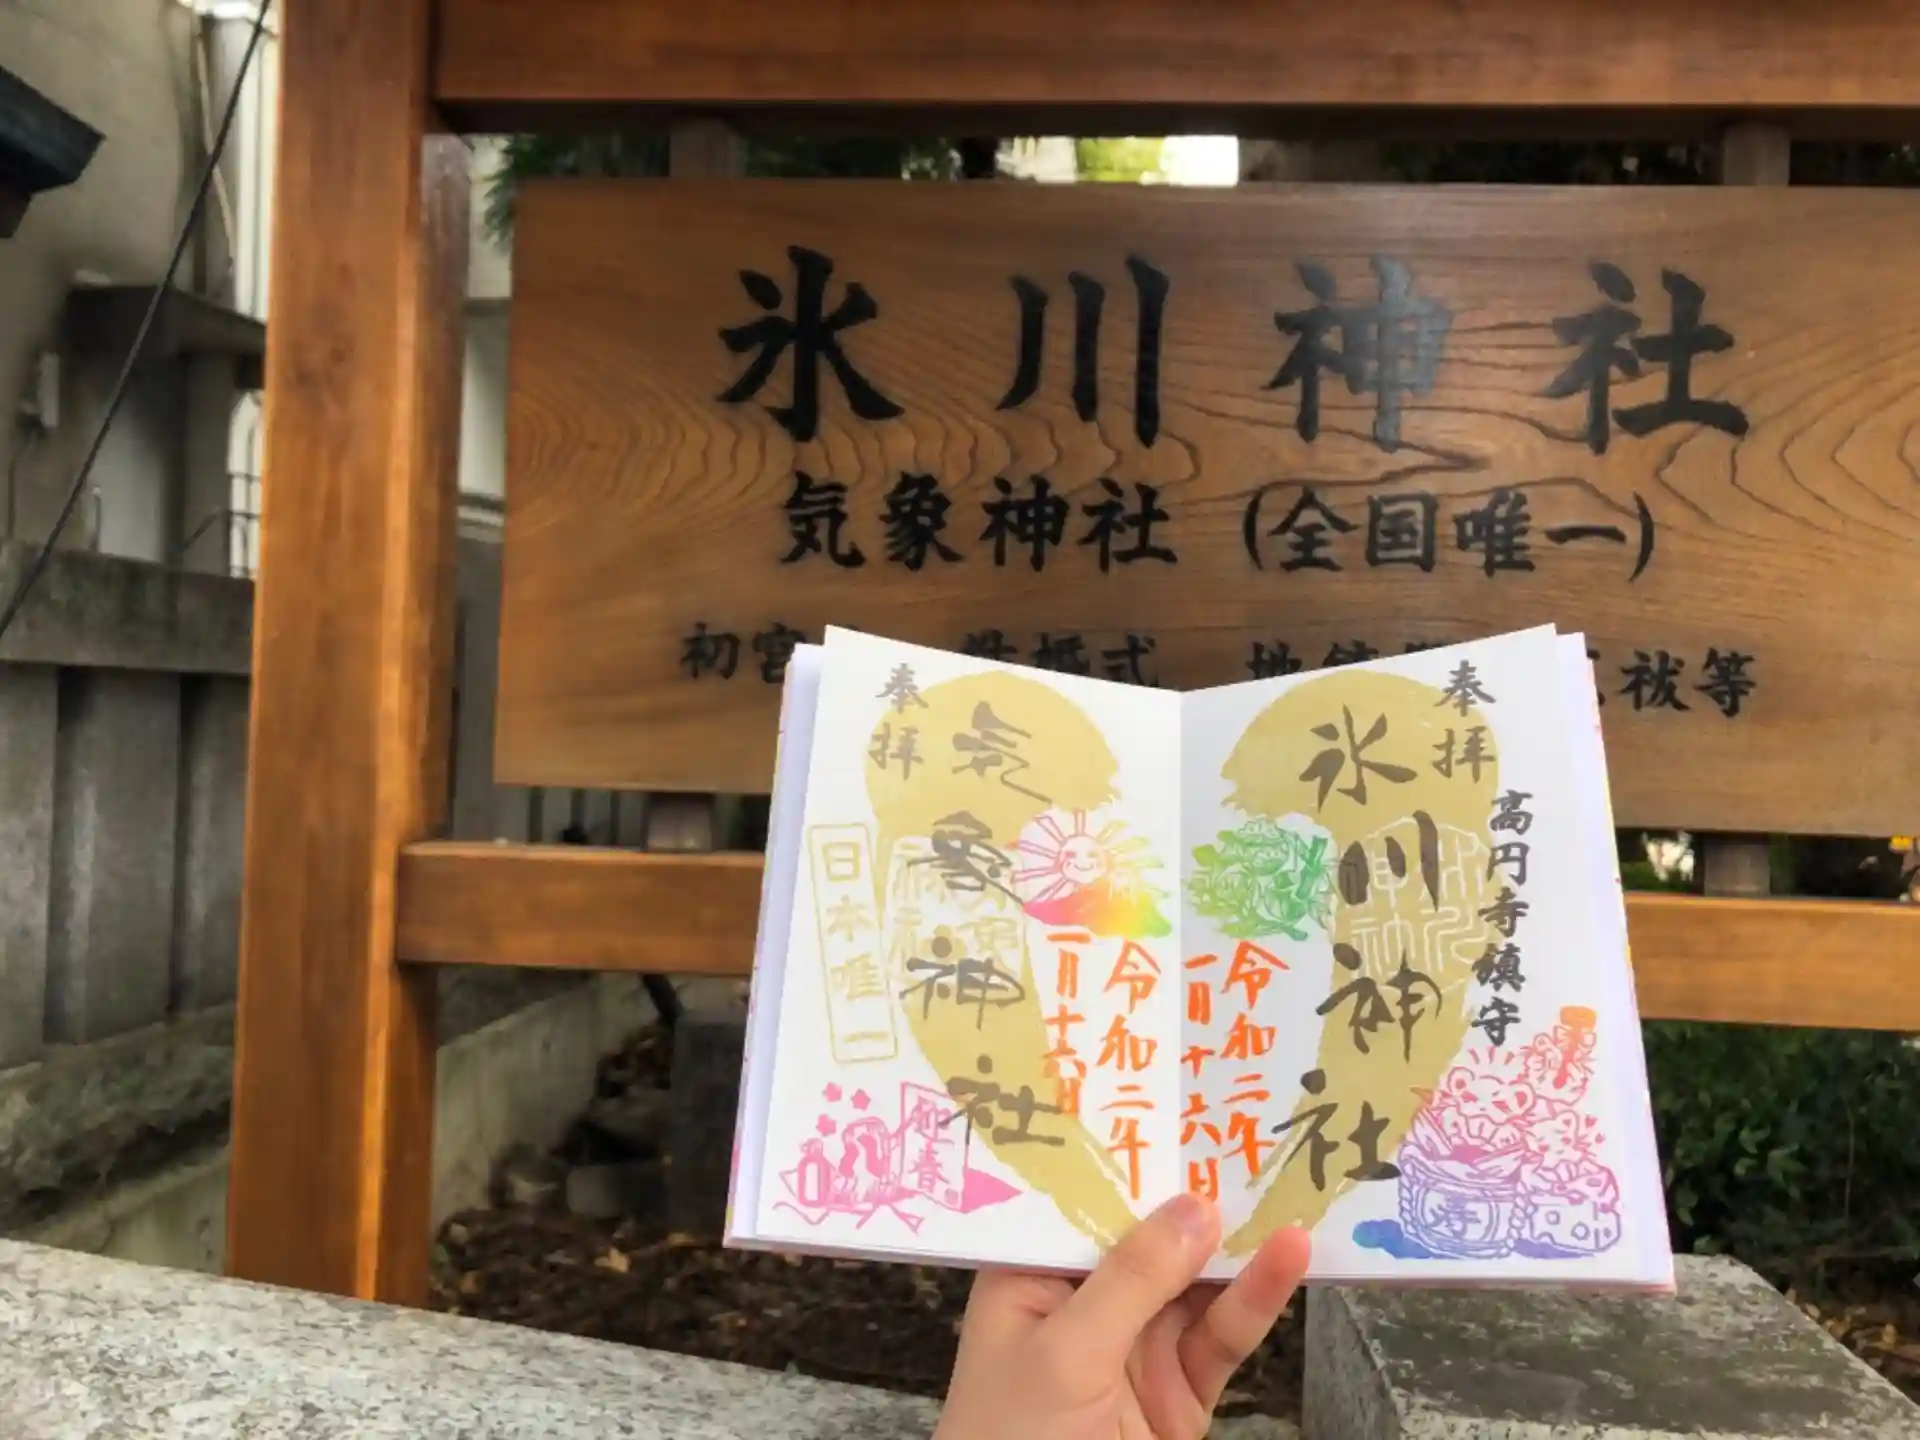 氷川神社
気象神社 (全国唯一)
初宮 結婚式 地鎮祭 祓等
奉拝
高円寺鎮守
氷川神社
令和二年
一月十六日
寿
奉拝
気象神社
令和二年
一月十六日
日本唯一
迎春